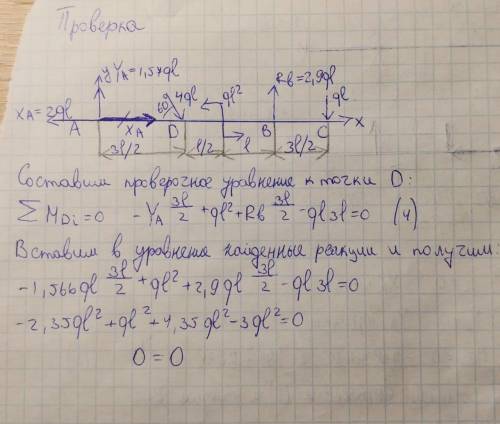 Проверка
y YA=1,57ql
60° 4ql
ql²
RB=2,9ql
ql
XA=2ql
A XA D B C X
3l/2 l/2 l 3l/2
Составим проверочное уравнение к точки D:
∑MDi=0 -YA 3l/2 +ql²+RB 3l/2 -ql3l=0 (4)
Вставим в уравнения найденные реакции и получим:
-1,566ql 3l/2 +ql²+2,9ql 3l/2 -ql3l=0
-2,35ql²+ql²+4,35ql²-3ql²=0
0=0